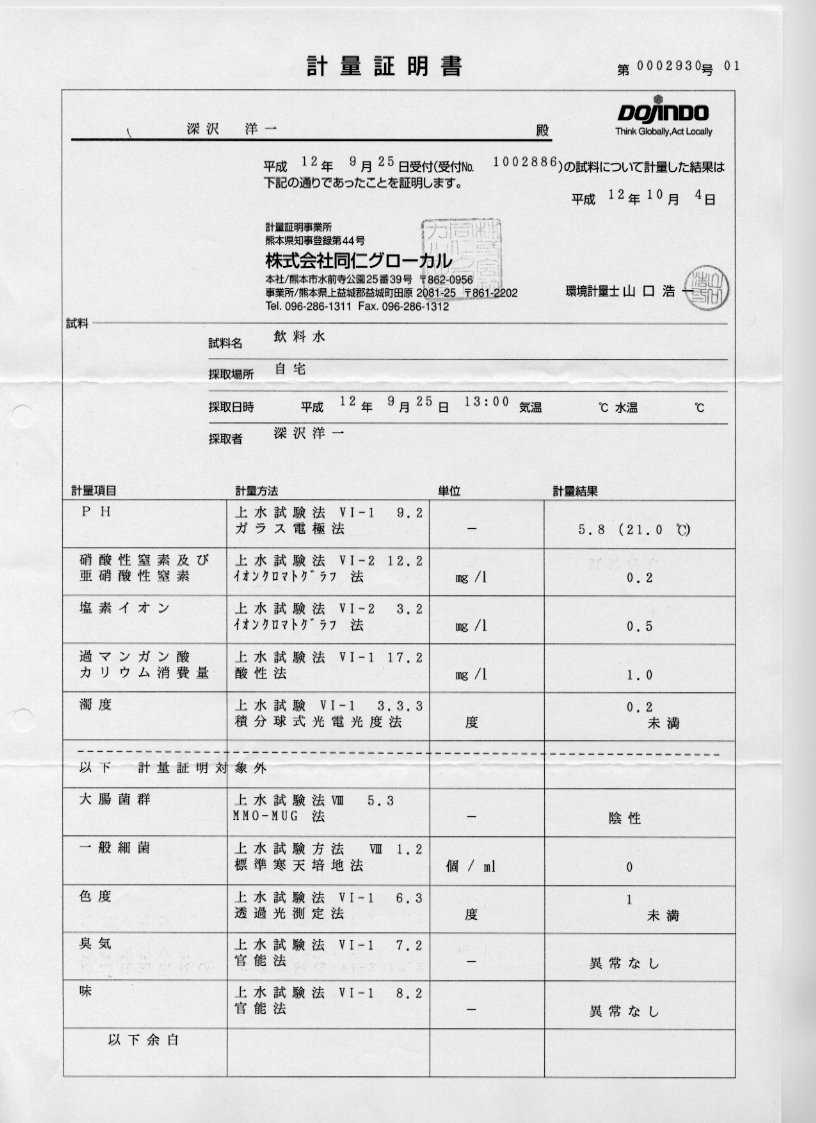 計量証明書
第0002930号 01
DOJINDO
Think Globally,Act Locally
深沢 洋一 殿
平成 12年 9月25日受付(受付No. 1002886)の試料について計量した結果は
下記の通りであったことを証明します。
平成 12年10月 4日
計量証明事業所
熊本県知事登録第44号
株式会社同仁グローカル
本社/熊本市水前寺公園25番39号 〒862-0956
事業所/熊本県上益城郡益城町田原 2081-25 〒861-2202
Tel. 096-286-1311 Fax. 096-286-1312
環境計量士 山口浩一
試料
試料名 飲料水
採取場所 自宅
採取日時 平成 12年 9月25日 13:00 気温 ℃ 水温 ℃
採取者 深沢洋一
計量項目 計量方法 単位 計量結果
PH 上水試験法 VI-1 9.2
ガラス電極法 − 5.8 (21.0 ℃)
硝酸性窒素及び 上水試験法 VI-2 12.2
亜硝酸性窒素 イオンクロマトグラフ 法 mg/l 0.2
塩素イオン 上水試験法 VI-2 3.2
イオンクロマトグラフ 法 mg/l 0.5
過マンガン酸 上水試験法 VI-1 17.2
カリウム消費量 酸性法 mg/l 1.0
濁度 上水試験 VI-1 3.3.3 0.2
積分球式光電光度法 度 未満
以下 計量証明対象外
大腸菌群 上水試験法Ⅷ 5.3
MMO-MUG 法 − 陰性
一般細菌 上水試験方法 Ⅷ 1.2
標準寒天培地法 個/ml 0
色度 上水試験法 VI-1 6.3 1
透過光測定法 度 未満
臭気 上水試験法 VI-1 7.2
官能法 − 異常なし
味 上水試験法 VI-1 8.2
官能法 − 異常なし
以下余白